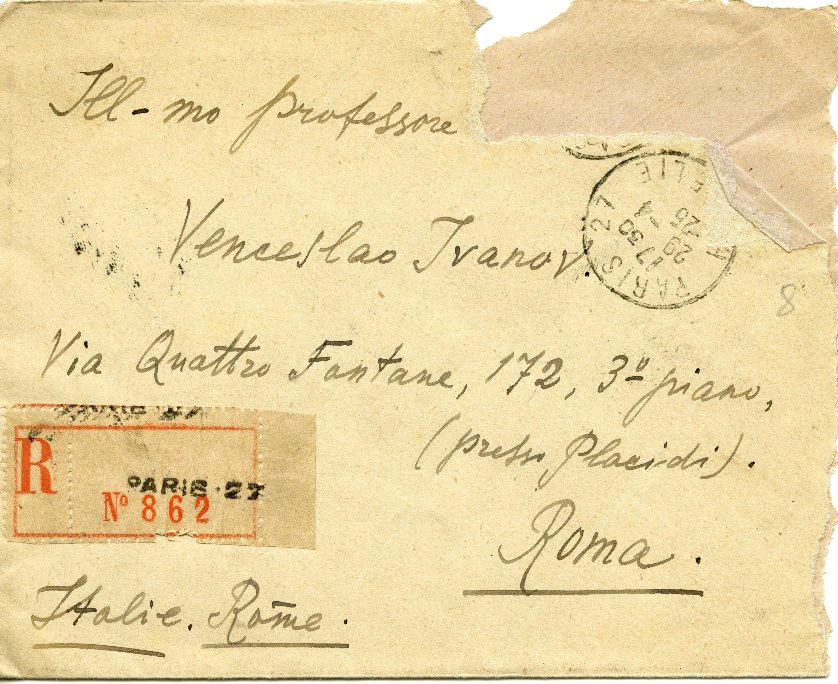 Ill-mo professore
Venceslao Ivanov.
Via Quattro Fontane, 172, 3º piano,
(presso Placidi).
Roma.
Italie. Rome.
R
PARIS-27
Nº 862
PARIS 27
17 30
29 -4
25